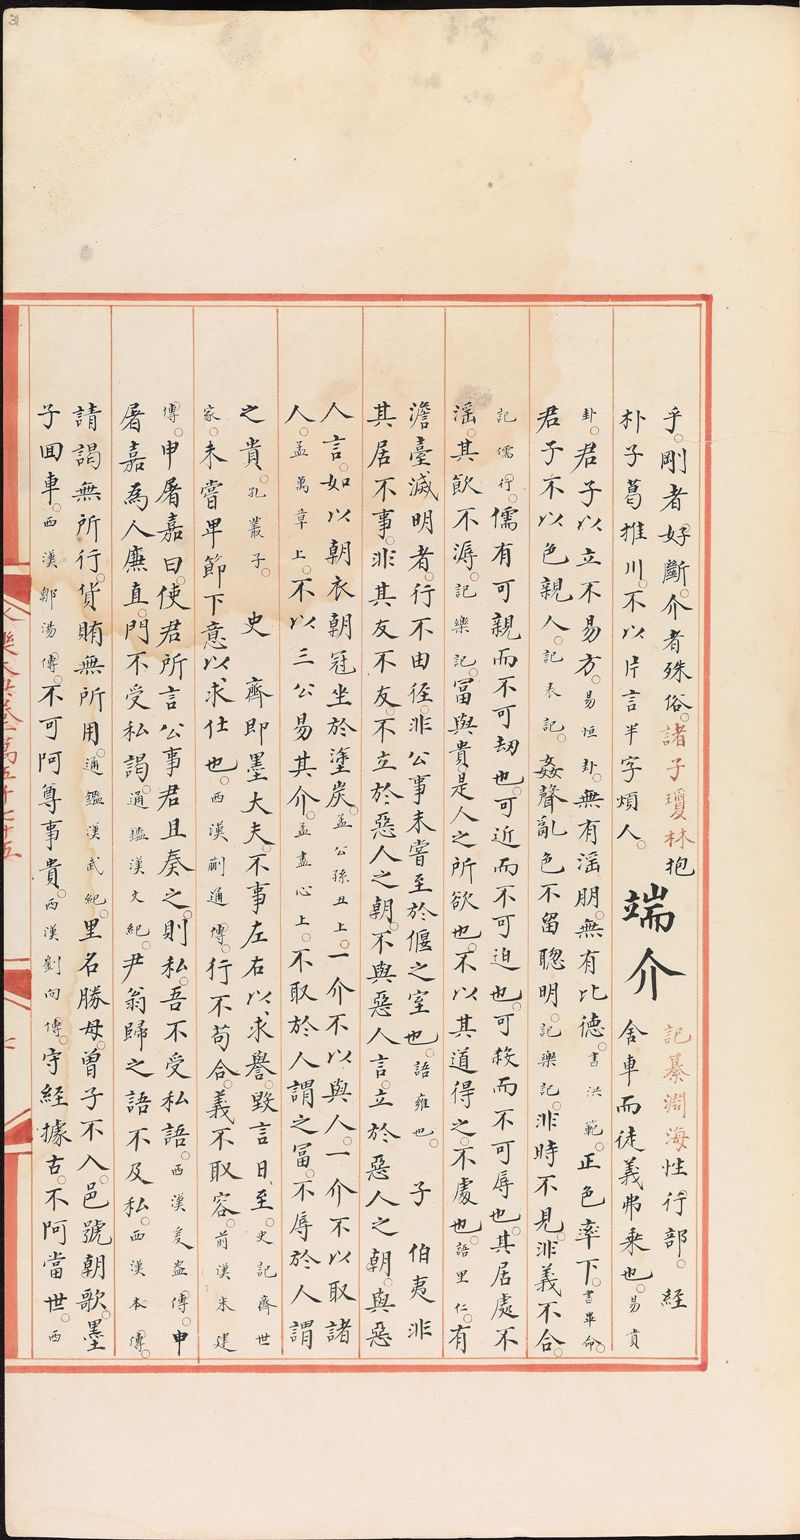 乎。剛者好斷。介者殊俗。諸子瓊林抱
朴子葛推川。不以片言半字煩人。
端介
記纂淵海性行部。 經
舍車而徒義弗乘也。易賁
卦。君子以立不易方。易恒卦。無有淫朋。無有比德。書洪範。正色率下。書畢命。
君子不以色親人。記表記。姦聲亂色不留聰明。記樂記。非時不見。非義不合。
記儒行。儒有可親而不可劫也。可近而不可迫也。可殺而不可辱也。其居處不
淫。其飲不溽。記樂記。冨與貴。是人之所欲也。不以其道得之。不處也。語里仁。有
澹臺滅明者。行不由徑。非公事未嘗至於偃之室也。語雍也。 子 伯夷非
其居不事。非其友不友。不立於惡人之朝。不與惡人言。立於惡人之朝。與惡
人言。如以朝衣朝冠坐於塗炭。孟公孫丑上。一介不以與人。一介不以取諸
人。孟萬章上。不以三公易其介。孟盡心上。不取於人謂之冨。不辱於人謂
之貴。孔叢子。 史 齊即墨大夫。不事左右以求譽。毀言日至。史記齊世
家。未嘗卑節下意以求仕也。西漢蒯通傳。行不苟合。義不取容。前漢朱建
傳。申屠嘉曰。使君所言公事君且奏之。則私。吾不受私語。西漢爰盎傳。申
屠嘉為人廉直。門不受私謁。通鑑漢文紀。尹翁歸之語不及私。西漢本傳。
請謁無所行。貨賄無所用。通鑑漢武紀。里名勝母。曾子不入。邑號朝歌。墨
子囬車。西漢鄒湯傳。不可阿尊事貴。西漢劉向傳。守經據古。不阿當世。西